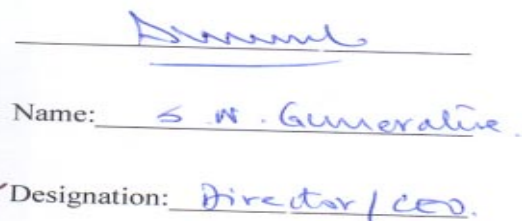 Name: S. N. Guneratne.
Designation: Director / CEO.